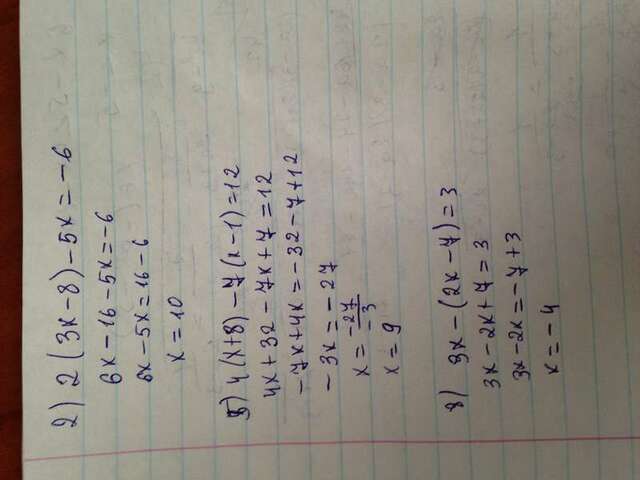 2) 2(3x-8)-5x=-6
6x-16-5x=-6
6x-5x=16-6
x=10
5) 4(x+8)-7(x-1)=12
4x+32-7x+7=12
-7x+4x=-32-7+12
-3x=-27
x=-27/-3
x=9
8) 3x-(2x-7)=3
3x-2x+7=3
3x-2x=-7+3
x=-4